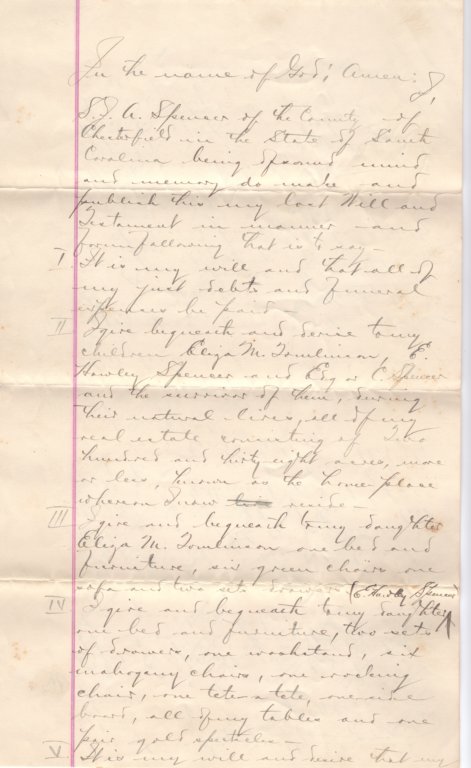 In the name of God; Amen: I,
S. J. A. Spencer of the County of
Chesterfield in the State of South
Carolina being of sound mind
and memory do make and
publish this my last Will and
Testament in manner and
form following that is to say—
I It is my will and that all of
my just debts and funeral
expenses be paid—
II I give bequeath and devise to my
children Eliza M. Tomlinson, E.
Hawley Spencer and C. Spencer
and the survivor of them, during
their natural lives, all of my
real estate consisting of Two
hundred and thirty eight acres, more
or less, known as the home place
whereon I now reside—
III I give and bequeath to my daughter
Eliza M. Tomlinson one bed and
furniture, six green chairs one
sofa and two sets drawers
(E. Hawley Spencer)
IV I give and bequeath to my daughter
one bed and furniture, two sets
of drawers, one washstand, six
mahogany chairs, one rocking
chair, one tete-a-tete, one side
board, all of my tables and one
pair gold spectacles—
V It is my will and desire that my